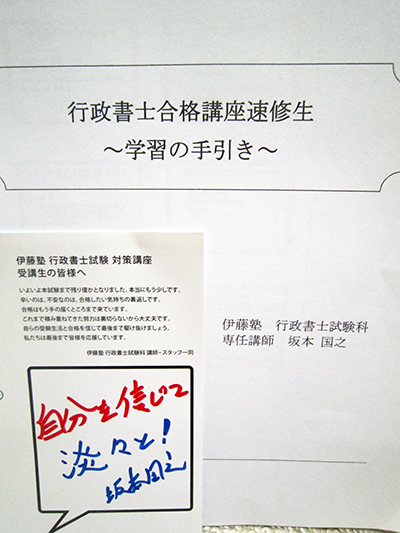 行政書士合格講座速修生
～学習の手引き～
伊藤塾 行政書士試験科
専任講師 坂本 国之
伊藤塾 行政書士試験 対策講座
受講生の皆様へ
いよいよ本試験まで残り僅かとなりました。本当にもう少しです。
辛いのは、不安なのは、合格したい気持ちの裏返しです。
合格はもう手の届くところまで来ています。
これまで積み重ねてきた努力は裏切らないから大丈夫です。
自らの受験生活と合格を信じて最後まで駆け抜けましょう。
私たちは最後まで皆様を応援しています。
伊藤塾 行政書士試験科 講師・スタッフ一同
自分を信じて
淡々と!
坂本国之